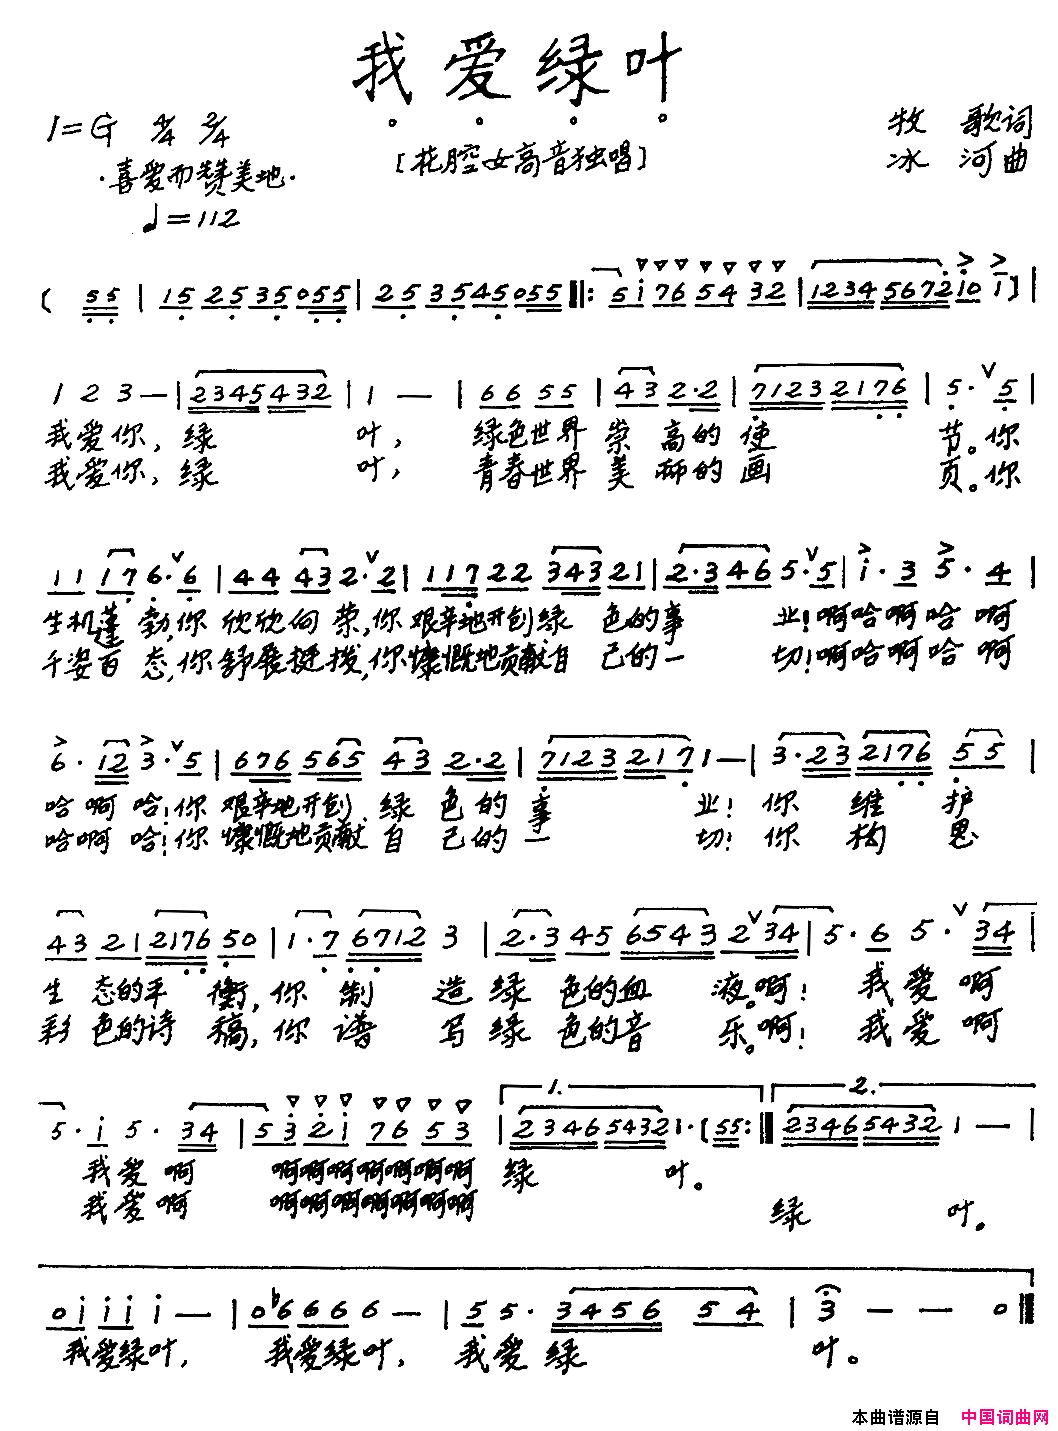 我爱绿叶
1=G 4/4 2/4
牧 歌词
[花腔女高音独唱]
冰 河曲
·喜爱而赞美地·
♩=112
( 55 | 15 25 35 055 | 25 35 45 055 ‖: 5i 76 54 32 | 1234 5672 i0 i ) |
1 2 3 — | 2345 432 | 1 — | 66 55 | 43 2·2 | 7123 2176 | 5· 5 |
我爱你，绿 叶， 绿色世界 崇 高的 使 节。你
我爱你，绿 叶， 青春世界 美 丽的 画 页。你
11 17 6· 6 | 44 43 2· 2 | 117 22 343 21 | 2·3 46 5· 5 | i· 3 5· 4 |
生机蓬 勃，你 欣欣向 荣，你 艰辛地开创绿 色的事 业！啊哈啊哈 啊
千姿百 态，你 舒展挺 拨，你慷慨地贡献自 己的一 切！啊哈啊哈 啊
6· 12 3· 5 | 676 565 43 2·2 | 7123 217 1 — | 3·23 2176 55 |
哈啊 哈！你 艰辛地开创 绿 色的 事 业！ 你 维 护
哈啊 哈！你 慷慨地贡献 自 己的 一 切！ 你 构 思
43 21 2176 50 | 1·7 6712 3 | 2·3 45 6543 234 | 5· 6 5· 34 |
生 态的平 衡，你 制 造 绿 色的血 液。啊！ 我 爱 啊
彩 色的诗 稿，你 谱 写 绿 色的音 乐。啊！ 我 爱 啊
1. 2.
5· i 5· 34 | 53 2i 76 53 | 2346 5432 1· ( 55 :‖ 2346 5432 1 — |
我爱 啊 啊啊啊啊啊啊啊 绿 叶。
我爱 啊 啊啊啊啊啊啊啊 绿 叶。
0i ii i — | 0♭6 66 6 — | 5 5· 3456 54 | 3 — — 0 ‖
我爱绿叶， 我爱绿叶， 我 爱 绿 叶。
本曲谱源自 中国词曲网